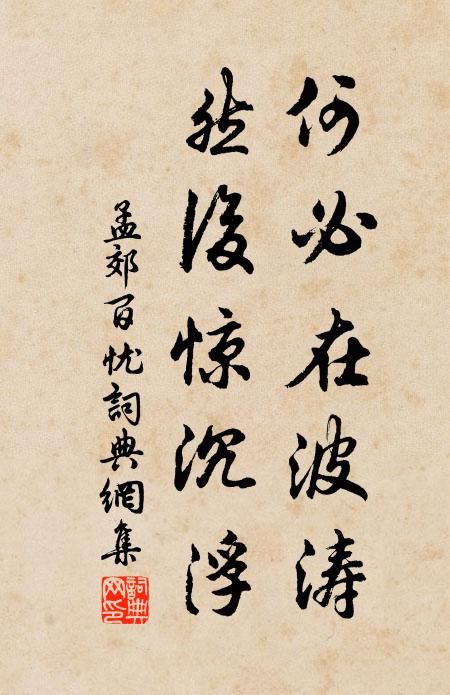 何必在波涛
然後惊沉浮
孟郊百忧詞典網集
詞典网印